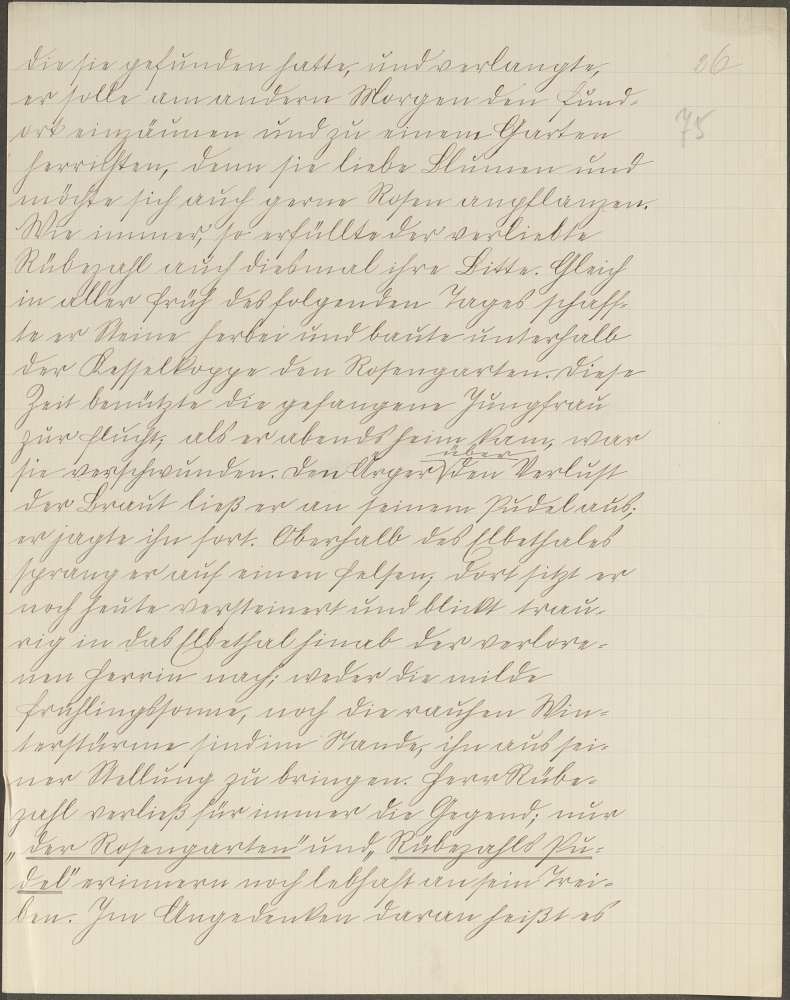 die sie gefunden hatte, und verlangte,
26
er solle am andern Morgen den Fund-
75
ort einzäunen und zu einem Garten
herrichten, denn sie liebe Blumen und
möchte sich auch gerne Rosen anpflanzen.
Wie immer, so erfüllte der verliebte
Rübezahl auch diesmal ihre Bitte. Gleich
in aller früh des folgenden Tages schaff-
te er Steine herbei und baute unterhalb
der Kesselkoppe den Rosengarten. Diese
Zeit benützte die gefangene Jungfrau
zur Flucht; als er abends heim kam, war
über
sie verschwunden. Den Ärger den Verlust
der Braut ließ er an seinem Pudel aus;
er jagte ihn fort. Oberhalb des Elbethales
sprang er auf einen Felsen; dort sitzt er
noch heute versteinert und blickt trau-
rig in das Elbethal hinab der verlore-
nen Herrin nach; weder die milde
Frühlingssonne, noch die rauhen Win-
terstürme sind im Stande, ihn aus sei-
ner Stellung zu bringen. Herr Rübe-
zahl verließ für immer die Gegend; nur
„der Rosengarten" und „Rübezahls Pu-
del" erinnern noch lebhaft an sein Trei-
ben. Im Angedenken daran heißt es